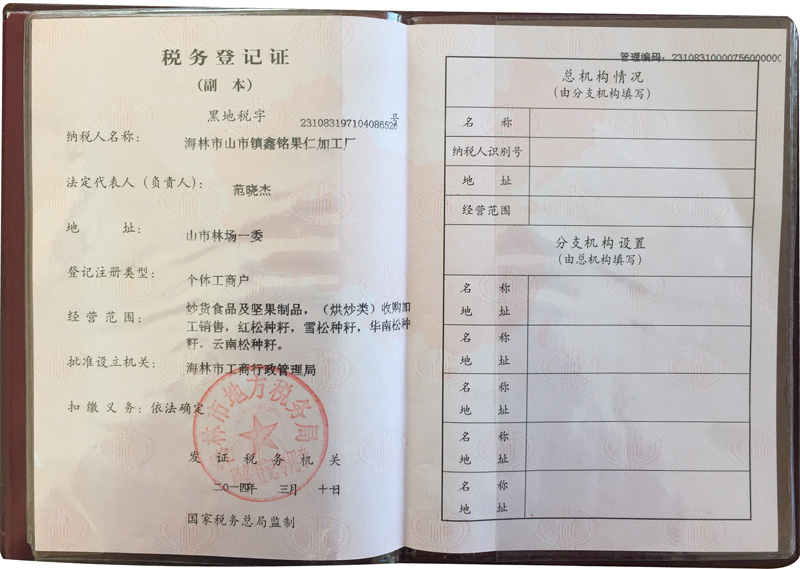 税务登记证
（副 本）
黑地税字 231083197104086526号
纳税人名称： 海林市山市镇鑫铭果仁加工厂
法定代表人（负责人）： 范晓杰
地 址： 山市林场一委
登记注册类型： 个体工商户
经营范围： 炒货食品及坚果制品，（烘炒类）收购加
工销售，红松种籽，雪松种籽，华南松种
籽．云南松种籽。
批准设立机关： 海林市工商行政管理局
扣缴义务：依法确定
海林市地方税务局
发证税务机关
二〇一四年 三月 十一日
国家税务总局监制
管理编码：2310831000075600000
总机构情况
（由分支机构填写）
名 称
纳税人识别号
地 址
经营范围
分支机构设置
（由总机构填写）
名 称
地 址
名 称
地 址
名 称
地 址
名 称
地 址
名 称
地 址